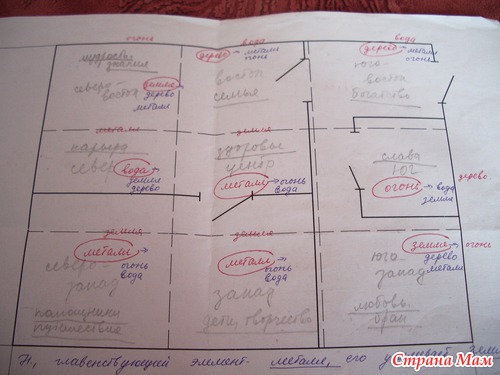 огонь
вода
вода
мудрость
знания
северо-
восток
земля
дерево
металл
дерево → металл
огонь
восток
семья
дерево → металл
огонь
юго-
восток
богатство
металл
карьера
север
вода →
земля
дерево
земля
здоровье
центр
металл → огонь
вода
слава
юг
огонь → вода
земля
дерево
земля
металл →
огонь
вода
северо-
запад
помощники
путешествие
земля
металл →
огонь
вода
запад
дети, творчество
земля → огонь
дерево
металл
юго-
запад
любовь,
брак
главенствующий элемент - металл, его
Страна Мам